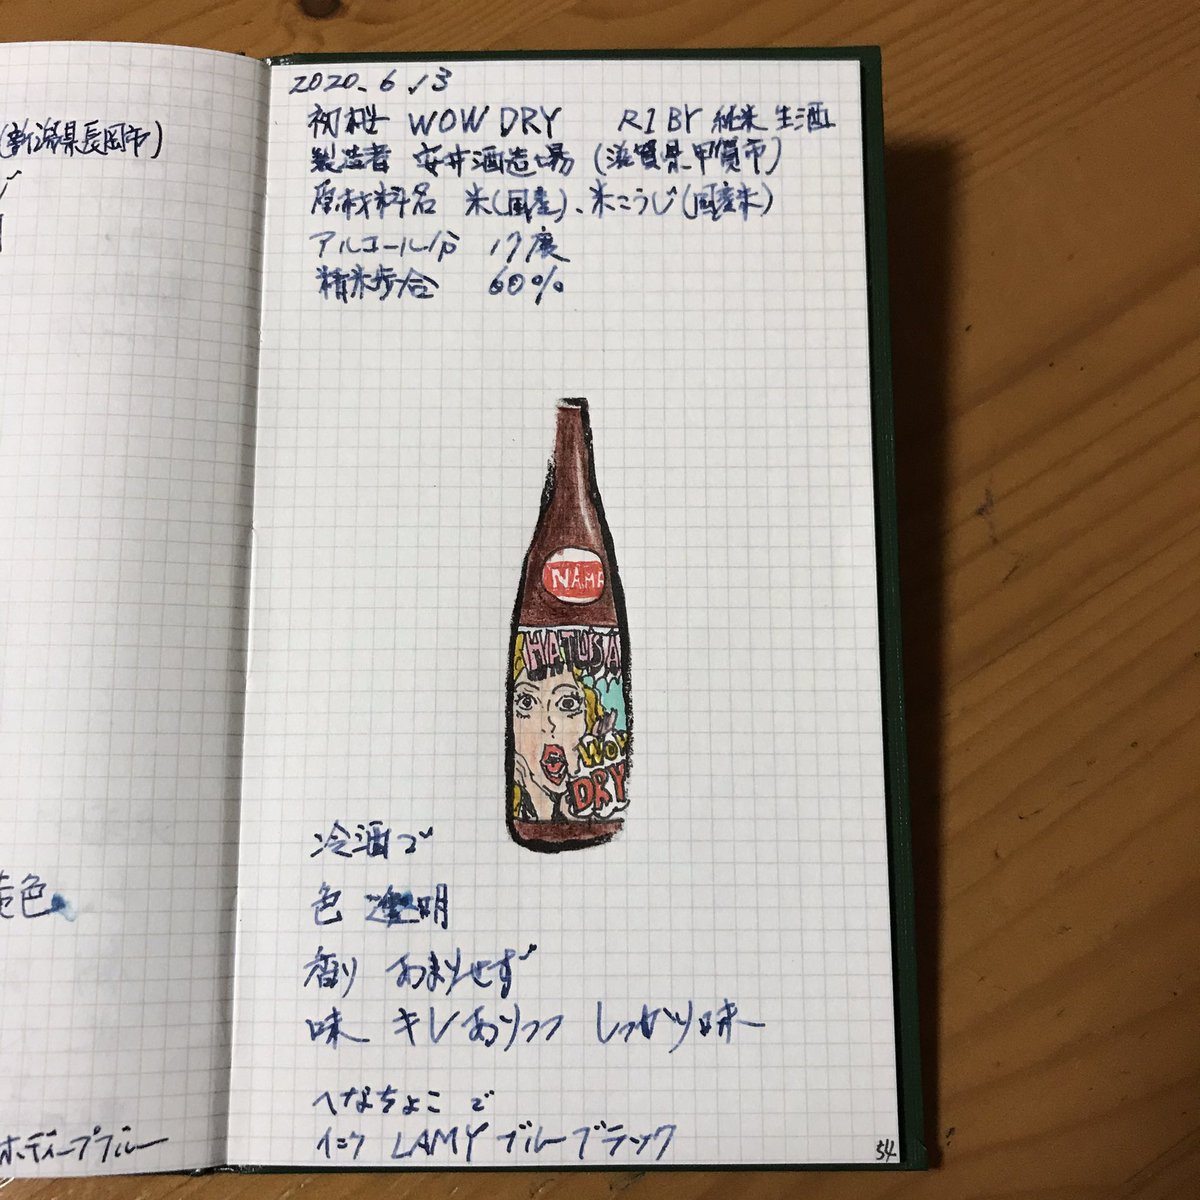 (新潟県長岡市)
色
ホディープブルー
2020.6.13
初桜 WOW DRY R1BY 純米 生酒
製造者 安井酒造場 (滋賀県甲賀市)
原材料名 米(国産)、米こうじ(国産米)
アルコール分 17度
精米歩合 60%
NAMA
HATUSA
WOW
DRY
冷酒で
色 透明
香り あまりせず
味 キレありつつ しっかり味
へなちょこで
インク LAMY ブルーブラック
54